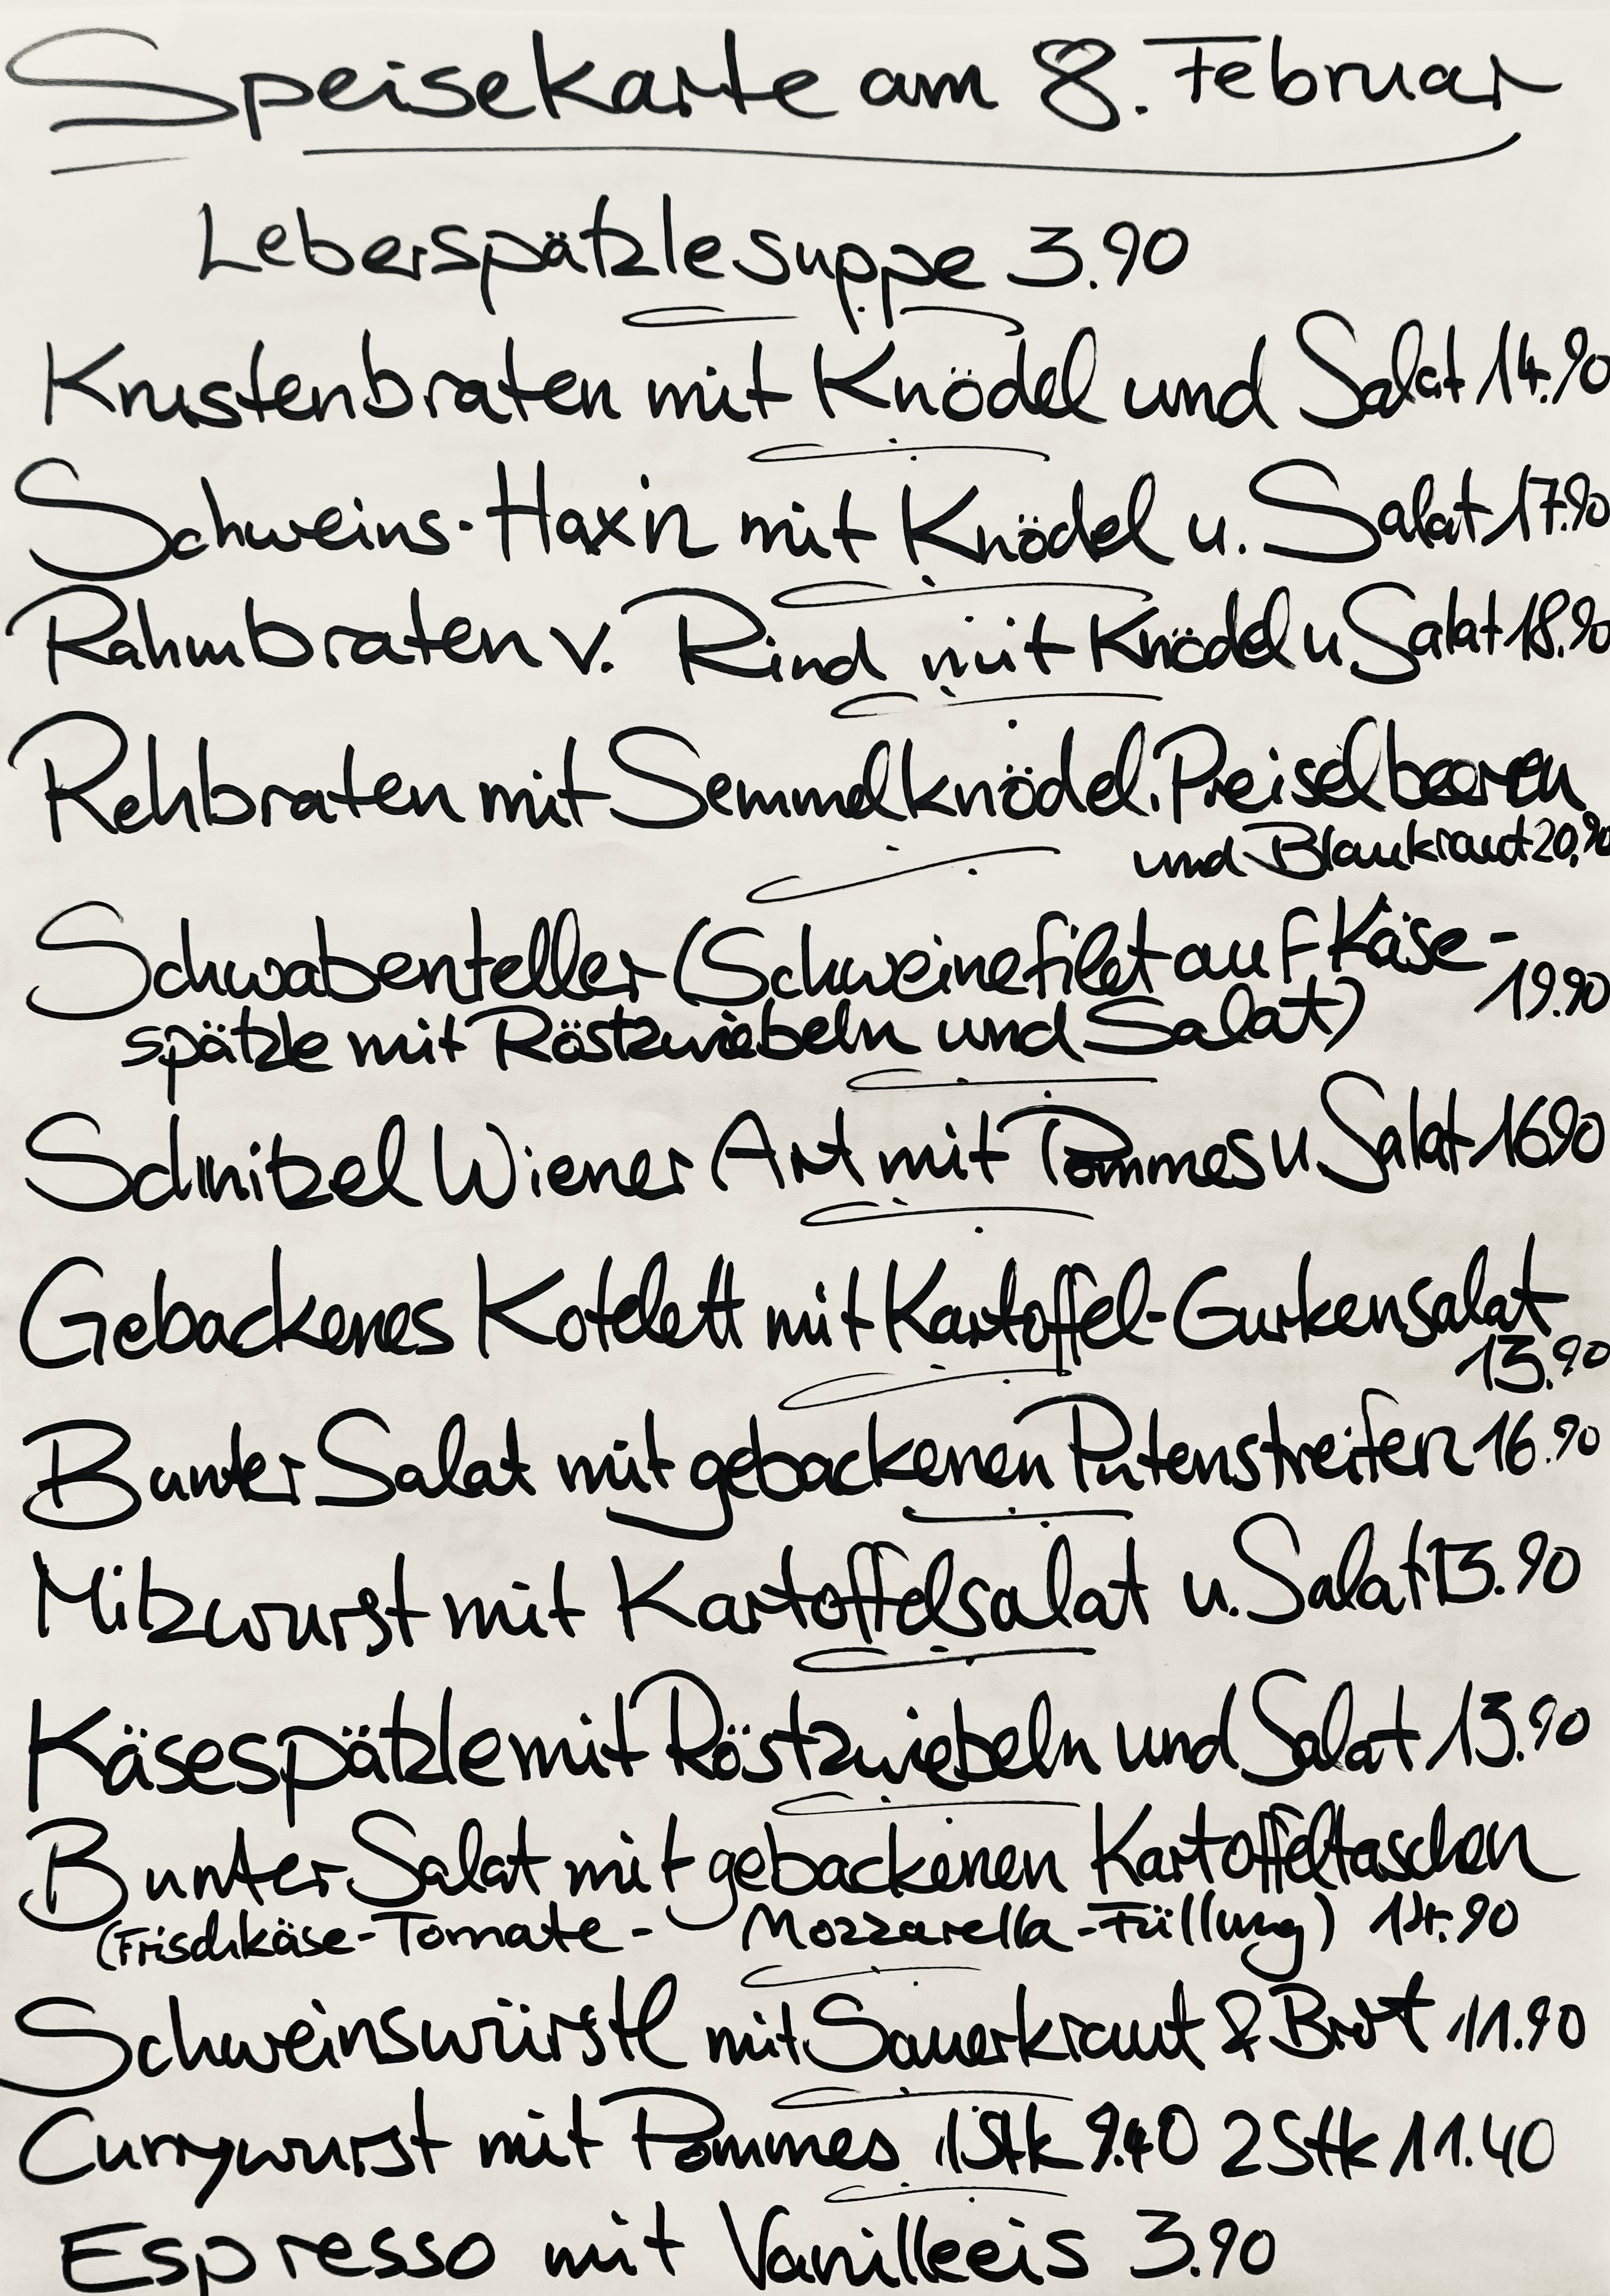 Speisekarte am 8. Februar
Leberspätzlesuppe 3.90
Krustenbraten mit Knödel und Salat 14.90
Schweins-Hax'n mit Knödel u. Salat 17.90
Rahmbraten v. Rind mit Knödel u Salat 18.90
Rehbraten mit Semmelknödel, Preiselbeeren
und Blaukraut 20,90
Schwabenteller (Schweinefilet auf Käse-
19.90
spätzle mit Röstzwiebeln und Salat)
Schnitzel Wiener Art mit Pommes u Salat 1690
Gebackenes Kotelett mit Kartoffel-Gurkensalat
13.90
Bunter Salat mit gebackenen Putenstreifen 16.90
Milzwurst mit Kartoffelsalat u. Salat 13.90
Käsespätzle mit Röstzwiebeln und Salat 13.90
Bunter Salat mit gebackenen Kartoffeltaschen
(Frischkäse-Tomate- Mozzarella-Füllung) 14.90
Schweinswürstl mit Sauerkraut & Brot 11.90
Currywurst mit Pommes 1Stk 9.40 2Stk 11.40
Espresso mit Vanilleeis 3.90